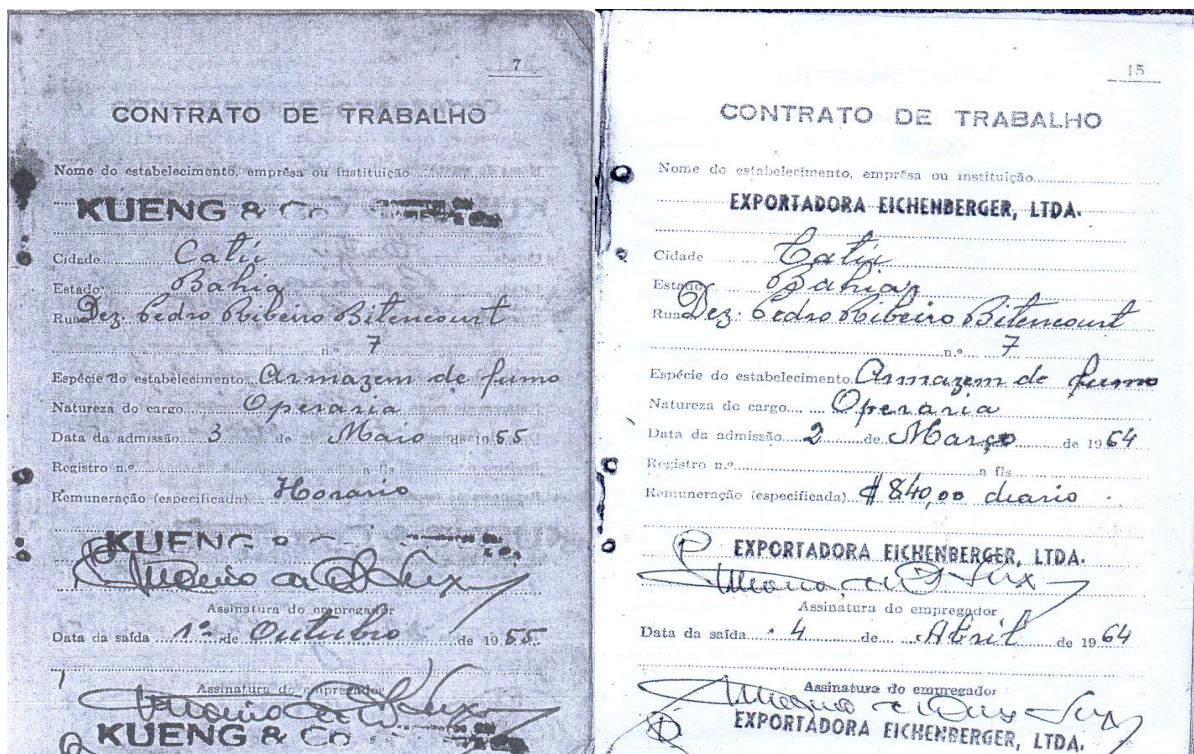 7
CONTRATO DE TRABALHO
Nome do estabelecimento, emprêsa ou instituição
KUENG & Co
Cidade Catú
Estado Bahia
Rua Dez. Pedro Ribeiro Bitencourt
n.º 7
Espécie do estabelecimento Armazem de fumo
Natureza do cargo Operaria
Data da admissão 3 de Maio de 1955
Registro n.º a fls
Remuneração (especificada) Horario
KUENG & Co
Assinatura do empregador
Data da saída 1º de Outubro de 1955
Assinatura do empregador
KUENG & Co
15
CONTRATO DE TRABALHO
Nome do estabelecimento, emprêsa ou instituição
EXPORTADORA EICHENBERGER, LTDA.
Cidade Catú
Estado Bahia
Rua Dez. Pedro Ribeiro Bitencourt
n.º 7
Espécie do estabelecimento Armazem de fumo
Natureza do cargo Operaria
Data da admissão 2 de Março de 1964
Registro n.º a fls
Remuneração (especificada) $840,00 diario
EXPORTADORA EICHENBERGER, LTDA.
Assinatura do empregador
Data da saída 4 de Abril de 1964
Assinatura do empregador
EXPORTADORA EICHENBERGER, LTDA.